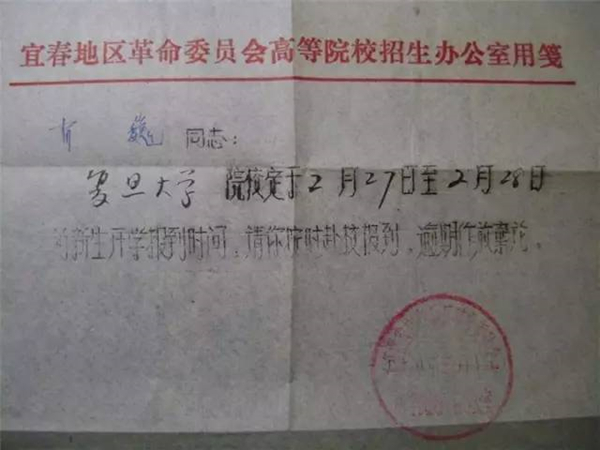 宜春地区革命委员会高等院校招生办公室用笺
肖巍 同志：
复旦大学 院校定于2月27日至2月28日
为新生开学报到时间，请你按时赴校报到，逾期作放弃论。